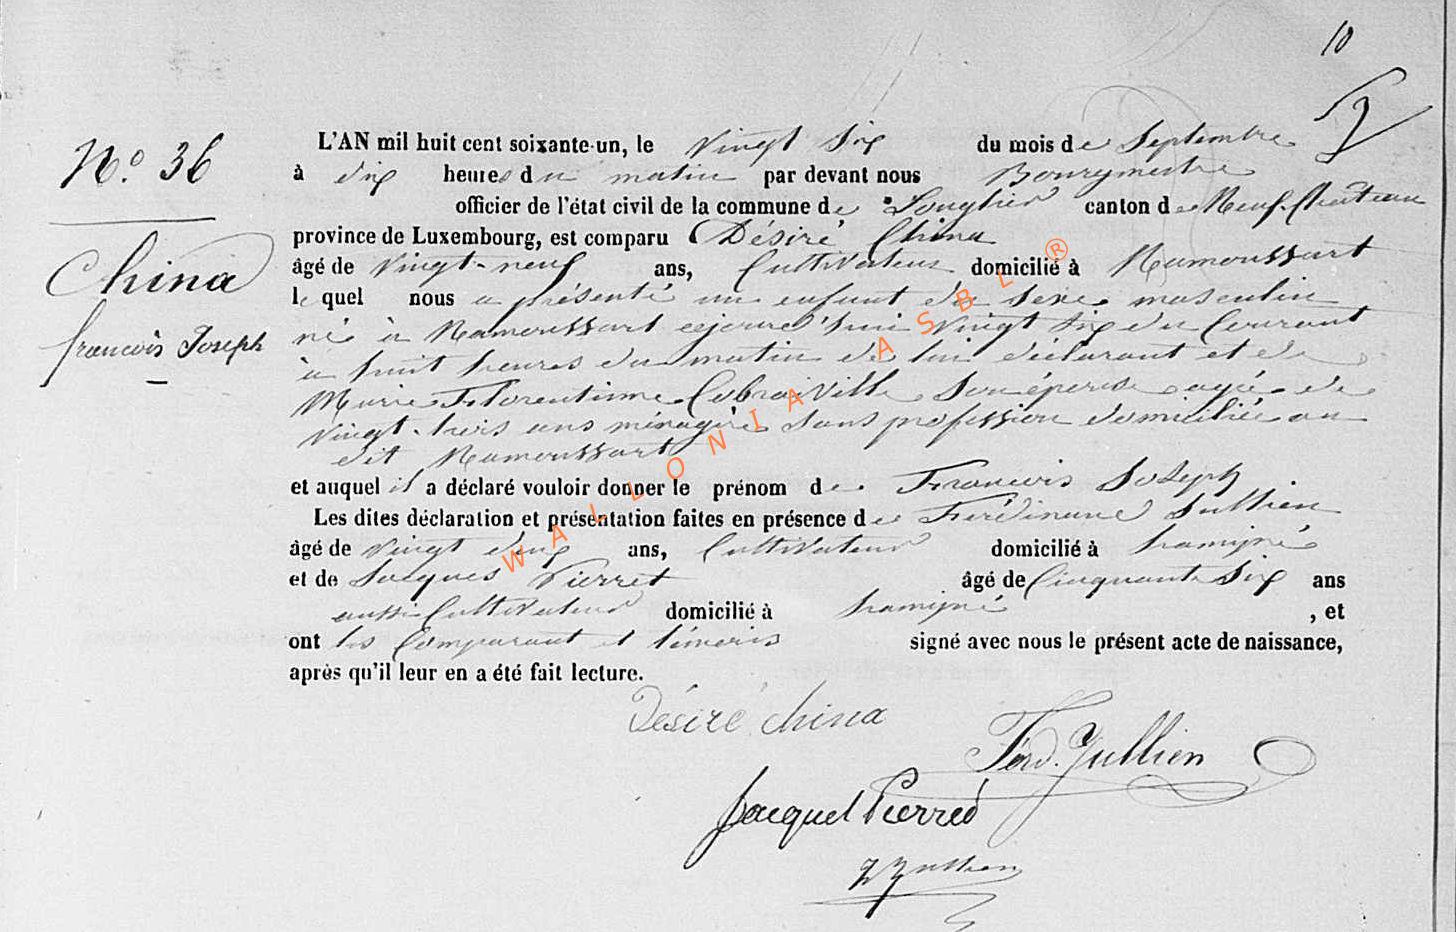 10
N.o 36
China
françois Joseph
L'AN mil huit cent soixante-un, le vingt six du mois de Septembre
à dix heures du matin par devant nous Bourgmestre
officier de l'état civil de la commune de Longlier canton de Neuf-Château
province de Luxembourg, est comparu Désiré China
âgé de vingt-neuf ans, Cultivateur domicilié à Namoussart
lequel nous a présenté un enfant du sexe masculin
né à Namoussart cejourd'hui vingt six du Courant
à huit heures du matin de lui déclarant et de
Marie Florentinne Cobraiville Son épouse agée de
vingt-trois ans ménagère Sans profession domiciliée au
dit Namoussart
et auquel il a déclaré vouloir donner le prénom de François Joseph
Les dites déclaration et présentation faites en présence de Ferdinand Jullien
âgé de vingt deux ans, Cultivateur domicilié à hamipré
et de Jacques Pierret âgé de Cinquante Six ans
aussi Cultivateur domicilié à hamipré , et
ont les Comparant et témoins signé avec nous le présent acte de naissance,
après qu'il leur en a été fait lecture.
Désiré China
Ferd. Jullien
Jacque Pierred
Jullien
WALLONIA ASBL ®